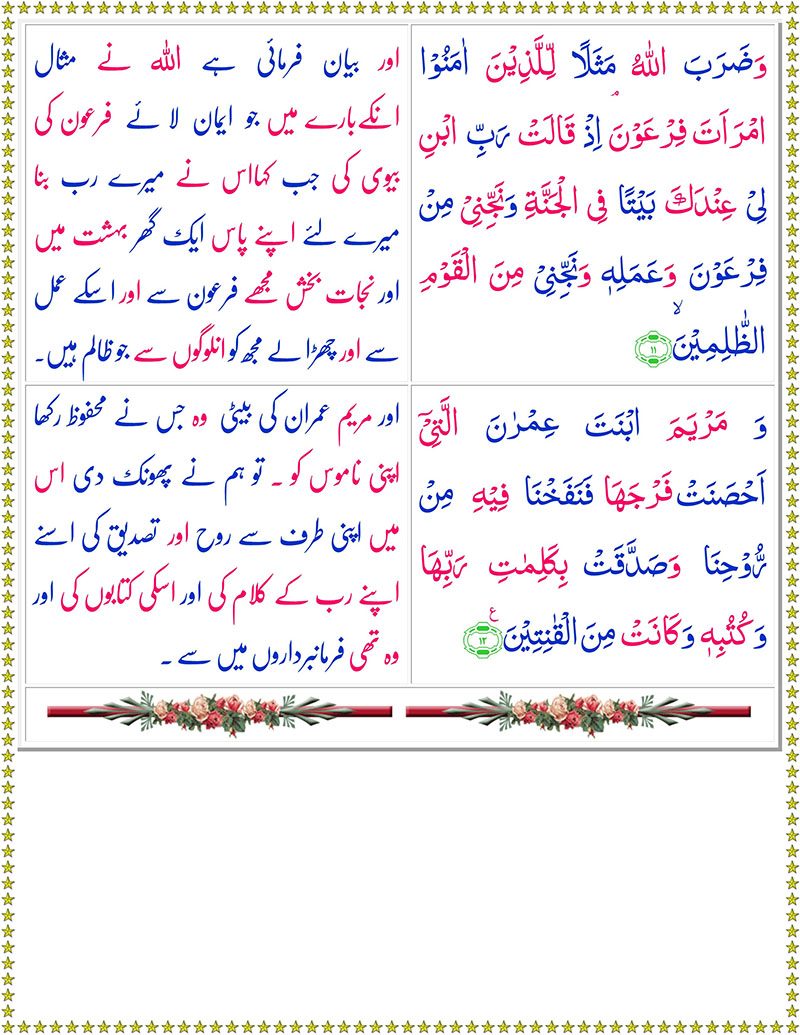 وَضَرَبَ اللّٰهُ مَثَلًا لِّلَّذِيۡنَ اٰمَنُوۡا
امۡرَاَتَ فِرۡعَوۡنَ‌ۘ اِذۡ قَالَتۡ رَبِّ ابۡنِ
لِىۡ عِنۡدَكَ بَيۡتًا فِى الۡجَـنَّةِ وَنَجِّنِىۡ مِنۡ
فِرۡعَوۡنَ وَعَمَلِهٖ وَنَجِّنِىۡ مِنَ الۡقَوۡمِ
الظّٰلِمِيۡنَۙ‏ ﴿۱۱﴾
اور بیان فرمائی ہے اللہ نے مثال
انکے بارے میں جو ایمان لائے فرعون کی
بیوی کی جب کہا اس نے میرے رب بنا
میرے لئے اپنے پاس ایک گھر بہشت میں
اور نجات بخش مجھے فرعون سے اور اسکے عمل
سے اور چھڑا لے مجھ کو انلوگوں سے جو ظالم ہیں۔
وَ مَرۡيَمَ ابۡنَتَ عِمۡرٰنَ الَّتِىۡۤ
اَحۡصَنَتۡ فَرۡجَهَا فَنَفَخۡنَا فِيۡهِ مِنۡ
رُّوۡحِنَا وَصَدَّقَتۡ بِكَلِمٰتِ رَبِّهَا
وَكُتُبِهٖ وَكَانَتۡ مِنَ الۡقٰنِتِيۡنَ ﴿۱۲﴾ ع
اور مریم عمران کی بیٹی وہ جس نے محفوظ رکھا
اپنی ناموس کو ۔ تو ہم نے پھونک دی اس
میں اپنی طرف سے روح اور تصدیق کی اسنے
اپنے رب کے کلام کی اور اسکی کتابوں کی اور
وہ تھی فرمانبرداروں میں سے ۔